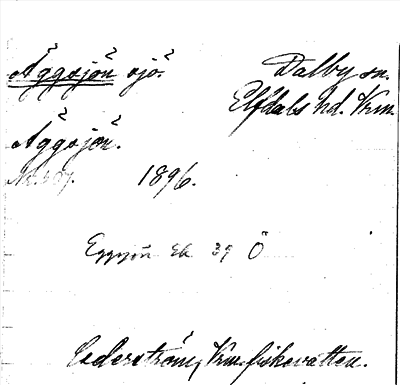 Äggsjön sjö. Dalby sn.
Elfdals hd. Vrm.
Äggsjön.
1896.
Eggsjön Ek 39 Ö
Cederström, Vrm. fiskevatten.